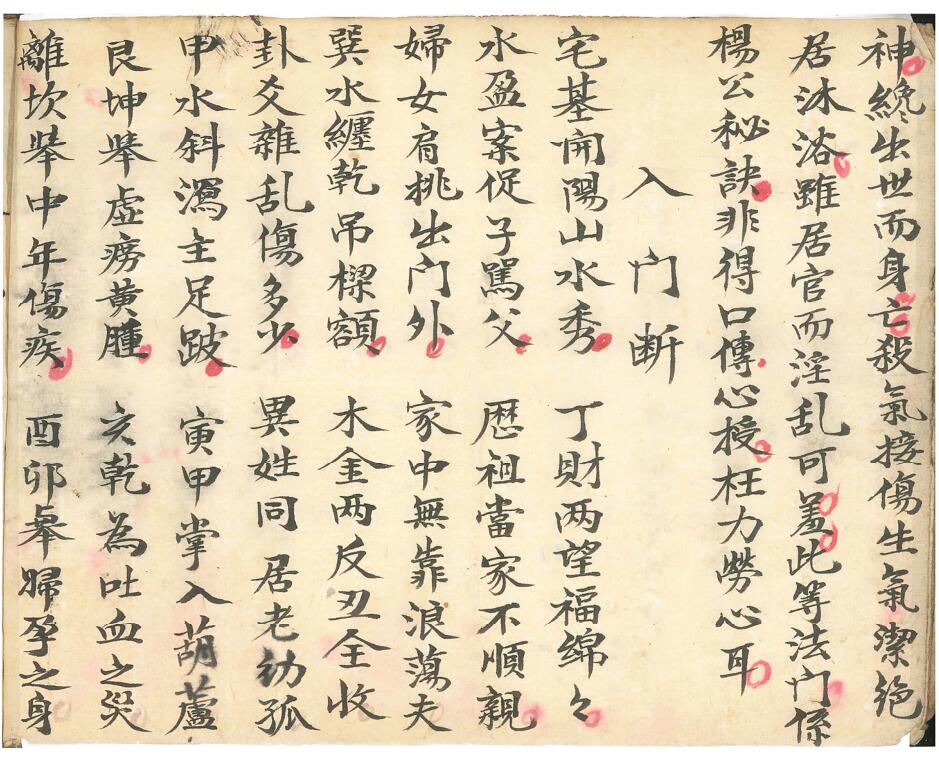 神纔出世而身亡殺氣接傷生氣潔绝
居沐浴雖居官而淫乱可羞此等法门係
楊公秘訣非得口傳心授枉力勞心耳
入门断
宅基開陽山水秀 丁財两望福綿々
水盈案促子罵父 歴祖當家不順親
婦女肩挑出门外 家中無靠浪蕩夫
巽水纒乾吊樑額 木金两反丑全收
卦爻雜乱傷多少 異姓同居老幼孤
甲水斜瀉主足跛 寅甲掌入葫蘆
艮坤举虚痨黄腫 亥乾為吐血之災
離坎举中年傷疾 酉卯举婦孕之身